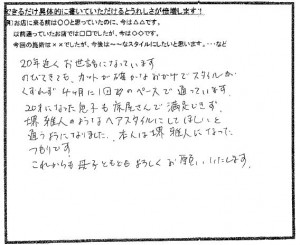 できるだけ具体的に書いていただけるとうれしさが倍増します!
お店に来る前は〇〇と思っていたのに、今は△△です。
以前通っていたお店では□□でしたが、今は〇〇です。
今回の施術は××でしたが、今後は~~なスタイルにしたいと思います。…など
20年近くお世話になっています
のびてきても、カットが確かなおかげでスタイルが
くずれず 4ヶ月に1回のペースで通っています。
20才になった息子も床屋さんで満足できず、
堺雅人のようなヘアスタイルにしてほしいと
通うようになりました。本人は堺雅人になった
つもりです
これからも母子ともどもよろしくお願いいたします。